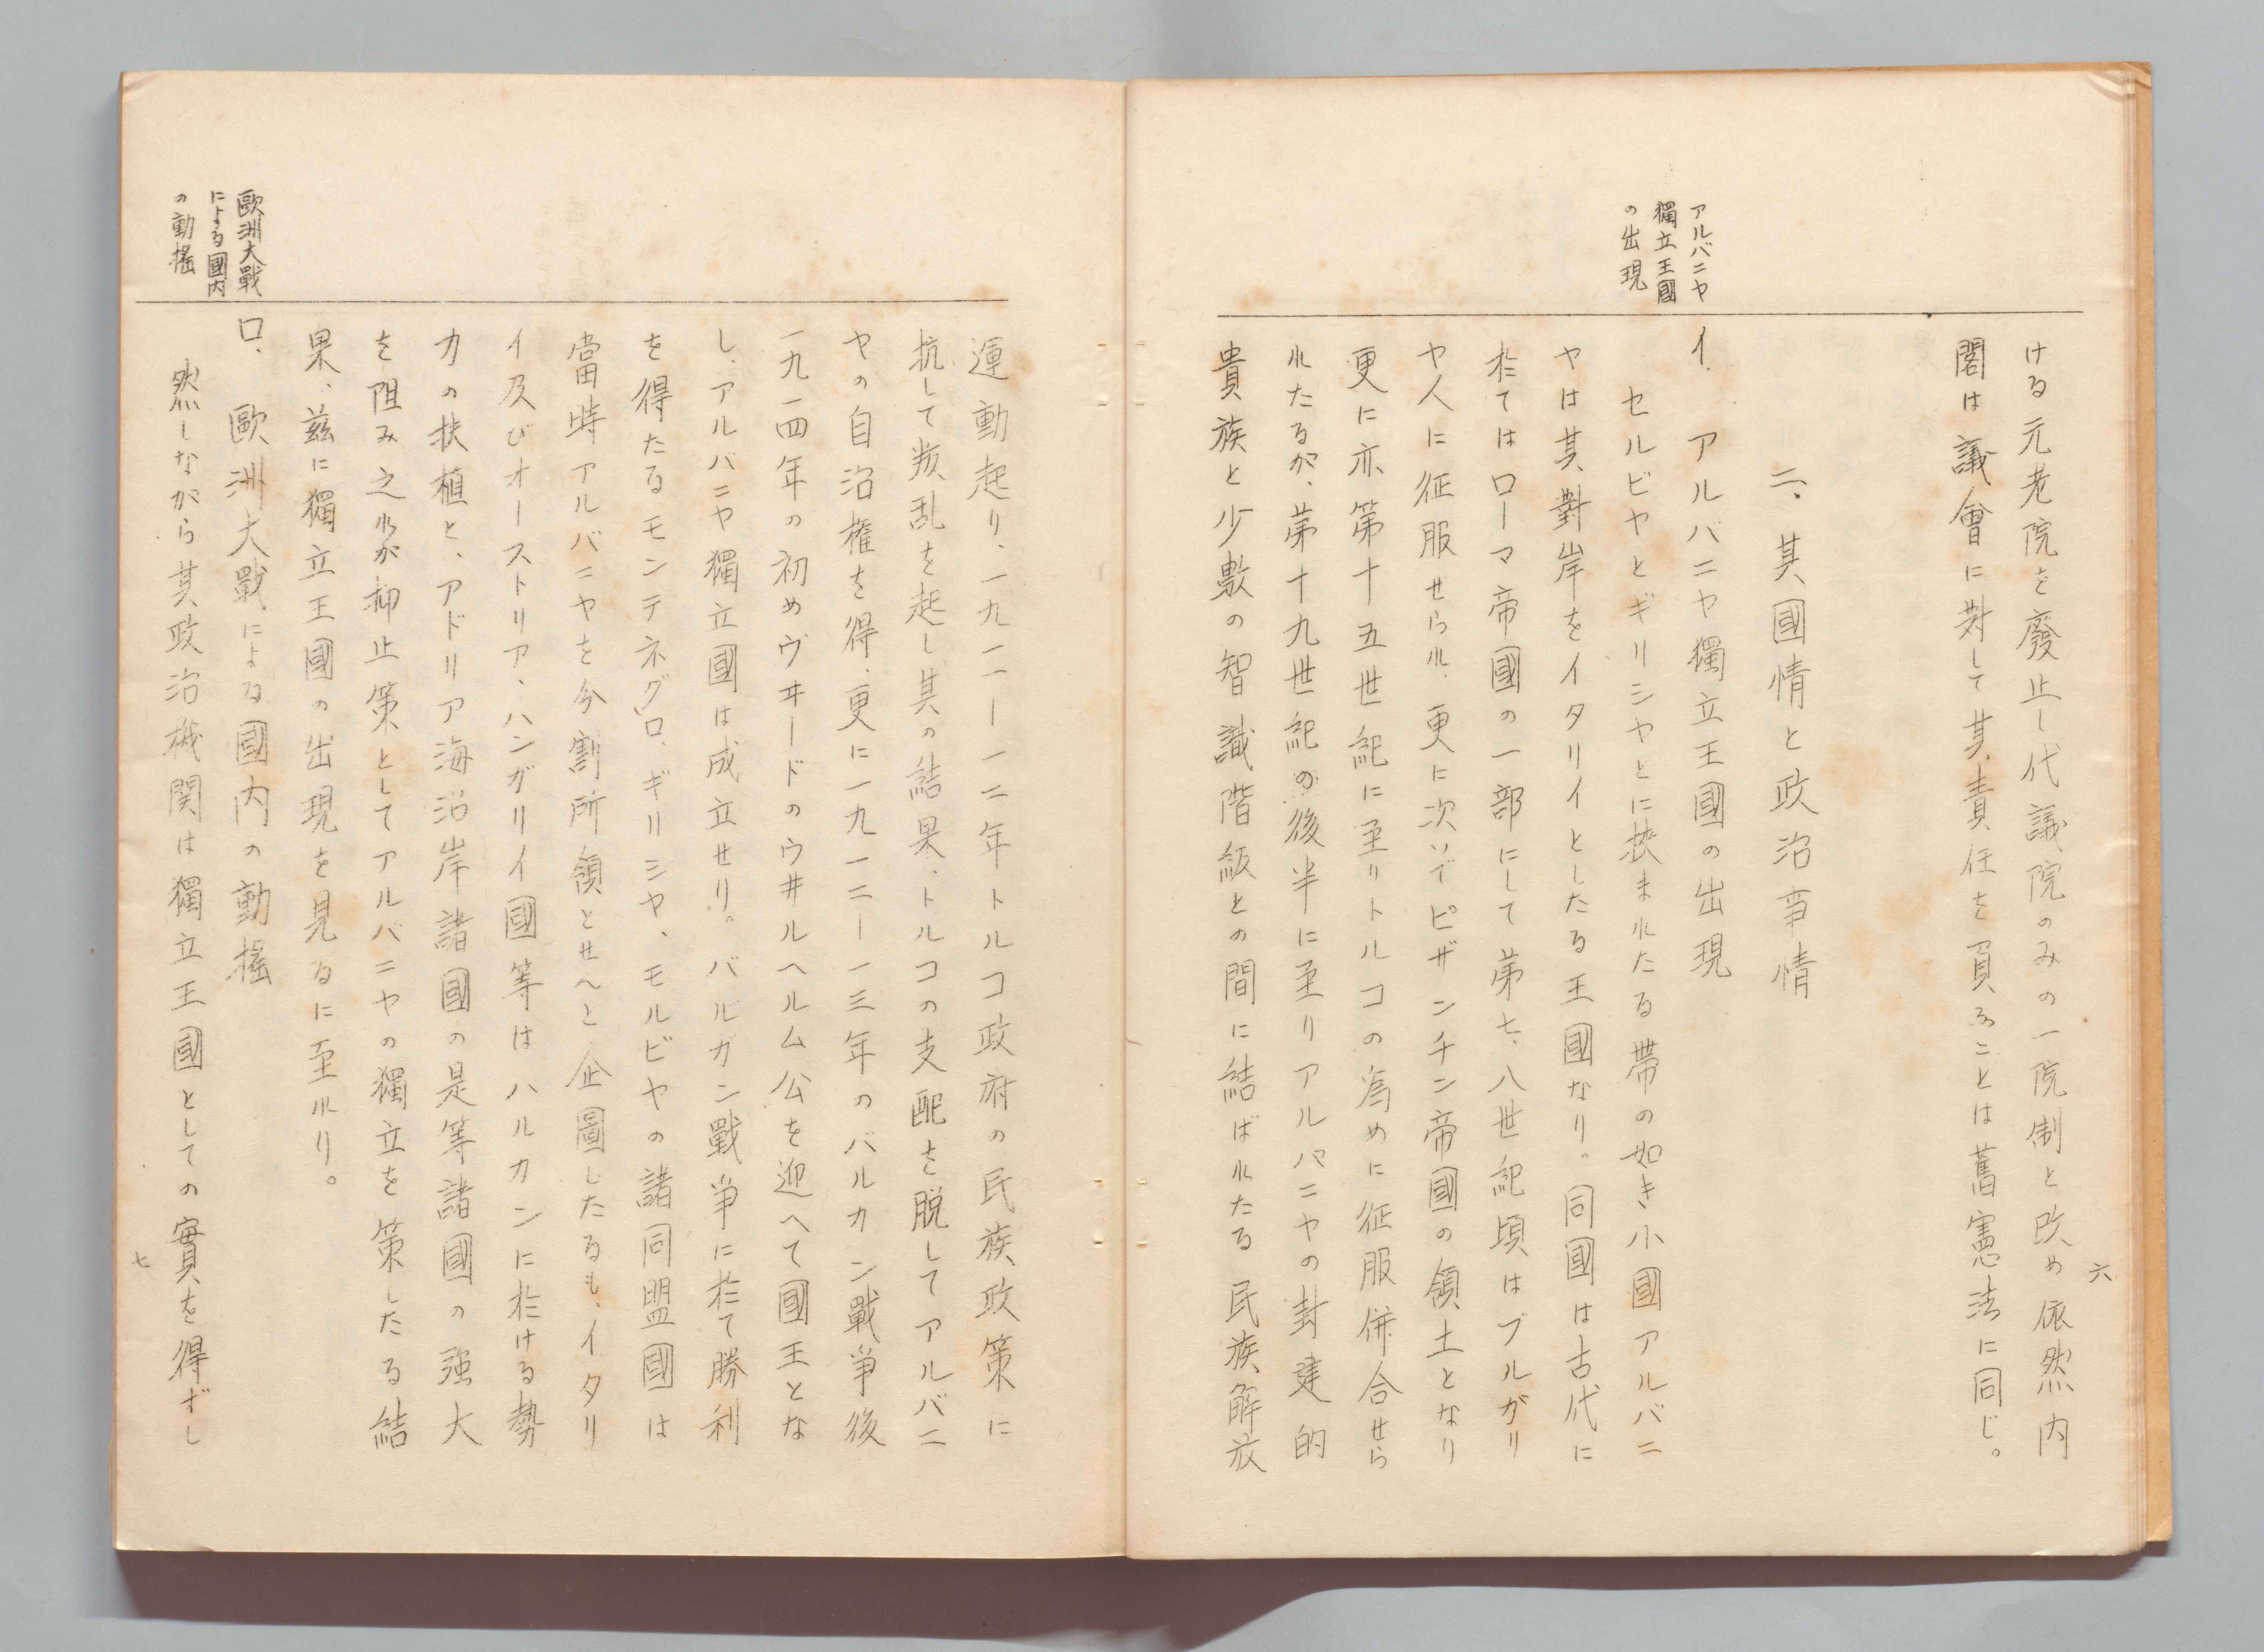 六
アルバニヤ
獨立王國
の出現
ける元老院を廢止し代議院のみの一院制と改め依然内
閣は議會に対して其責任を負ふことは舊憲法に同じ。
二、其國情と政治事情
イ.アルバニヤ獨立王國の出現
セルビヤとギリシヤとに挾まれたる帯の如き小國アルバニ
ヤは其對岸をイタリイとしたる王國なり。同國は古代に
於てはローマ帝國の一部にして第七、八世紀頃はブルガリ
ヤ人に征服せられ、更に次いでビザンチン帝國の領土となり
更に亦第十五世紀に至りトルコの為めに征服併合せら
れたるが、第十九世紀の後半に至りアルバニヤの封建的
貴族と少數の智識階級との間に結ばれたる民族解放
歐洲大戰
による國内
の動搖
運動起り、一九一一―一二年トルコ政府の民族政策に
抗して叛乱を起し其の結果、トルコの支配を脱してアルバニ
ヤの自治権を得、更に一九一二―一三年のバルカン戰爭後
一九一四年の初めヴヰードのウヰルヘルム公を迎へて國王とな
し、アルバニヤ獨立國は成立せり。バルガン戰爭に於て勝利
を得たるモンテネグロ、ギリシヤ、モルビヤの諸同盟國は
當時アルバニヤを分割所領とせんと企圖したるも、イタリ
イ及びオーストリア、ハンガリイ國等はハルカンに於ける勢
力の扶植と、アドリア海沿岸諸國の是等諸國の强大
を阻み之れが抑止策としてアルバニヤの獨立を策したる結
果、茲に獨立王國の出現を見るに至れり。
ロ、歐洲大戰による國内の動搖
然しながら其政治機関は獨立王國としての實を得ずし
七